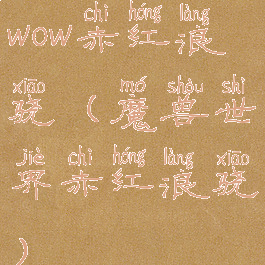 chì hóng làng
WOW赤红浪
xiāo mó shòu shì
骁（魔兽世
jiè chì hóng làng xiāo
界赤红浪骁
）